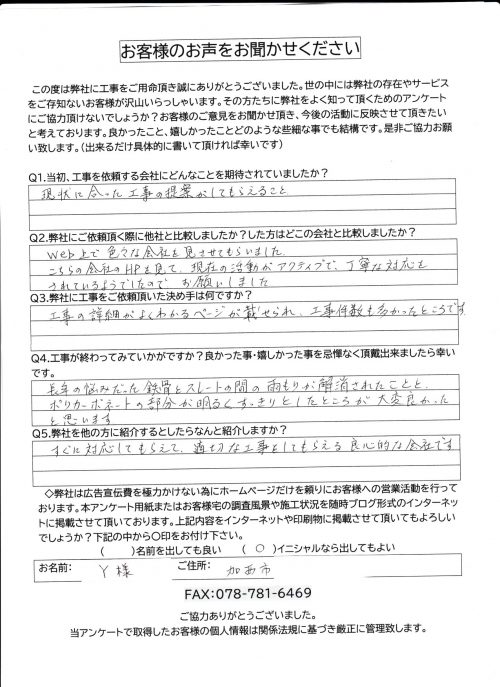 お客様のお声をお聞かせください
この度は弊社に工事をご用命頂き誠にありがとうございました。世の中には弊社の存在やサービス
をご存知ないお客様が沢山いらっしゃいます。その方たちに弊社をよく知って頂くためのアンケート
にご協力頂けないでしょうか？お客様のご意見をお聞かせ頂き、今後の活動に反映させて頂きたい
と考えております。良かったこと、嬉しかったことどのような些細な事でも結構です。是非ご協力お願
い致します。（出来るだけ具体的に書いて頂ければ幸いです）
Q1.当初、工事を依頼する会社にどんなことを期待されていましたか？
現状に合った工事の提案がしてもらえること
Q2.弊社にご依頼頂く際に他社と比較しましたか？した方はどこの会社と比較しましたか？
Web上で色々な会社を見させてもらいました。
こちらの会社のHPを見て、現在の活動がアクティブで、丁寧な対応を
されているようでしたので お願いしました
Q3.弊社に工事をご依頼頂いた決め手は何ですか？
工事の詳細がよくわかるページが載せられ、工事件数も多かったところです
Q4.工事が終わってみていかがですか？良かった事・嬉しかった事を忌憚なく頂戴出来ましたら幸い
です。
長年の悩みだった鉄骨とスレートの間の雨もりが解消されたことと、
ポリカーボネートの部分が明るくすっきりとしたところが大変良かった
と思います
Q5.弊社を他の方に紹介するとしたらなんと紹介しますか？
すぐに対応してもらえて、適切な工事をしてもらえる良心的な会社です
◇弊社は広告宣伝費を極力かけない為にホームページだけを頼りにお客様への営業活動を行って
おります。本アンケート用紙またはお客様宅の調査風景や施工状況を随時ブログ形式のインターネッ
トに掲載させて頂いております。上記内容をインターネットや印刷物に掲載させて頂いてもよろしい
でしょうか？下記の中から〇印をお付け下さい。
（　　）名前を出しても良い　（ ○ ）イニシャルなら出してもよい
お名前： Y様 ご住所： 加西市
FAX：078-781-6469
ご協力ありがとうございました。
当アンケートで取得したお客様の個人情報は関係法規に基づき厳正に管理致します。